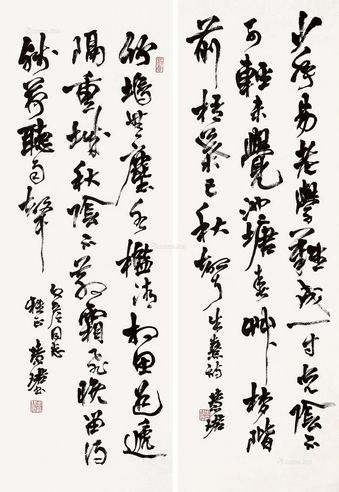 少年易老學難成一寸光陰不
可輕未覺池塘春草夢階
前梧葉已秋聲 朱熹詩 黃
竹塢無塵水檻清相思迢遞
隔重城秋陰不散霜飛晚留得
荷聽雨聲
同志
正 黃